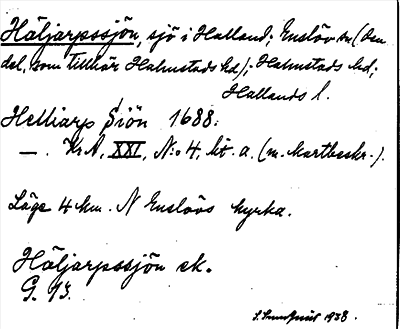 Häljarpssjön, sjö i Halland; Enslöv sn (den
del, som tillhör Halmstads hd); Halmstads hd;
Hallands l.
Helliarp Siön 1688:
—. KrA, XXI, N:o 4, bö. a. (m. kartbeskr.).
Läge 4 km. N Enslövs kyrka.
Häljarpssjön ek.
G. 13.
1938.